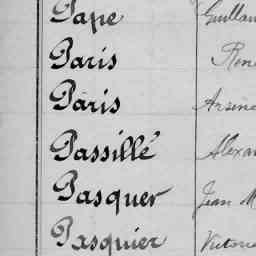 Pape Guillau
Paris René
Paris Arsène
Passillé Alexan
Pasquer Jean M
Pasquier Victoire